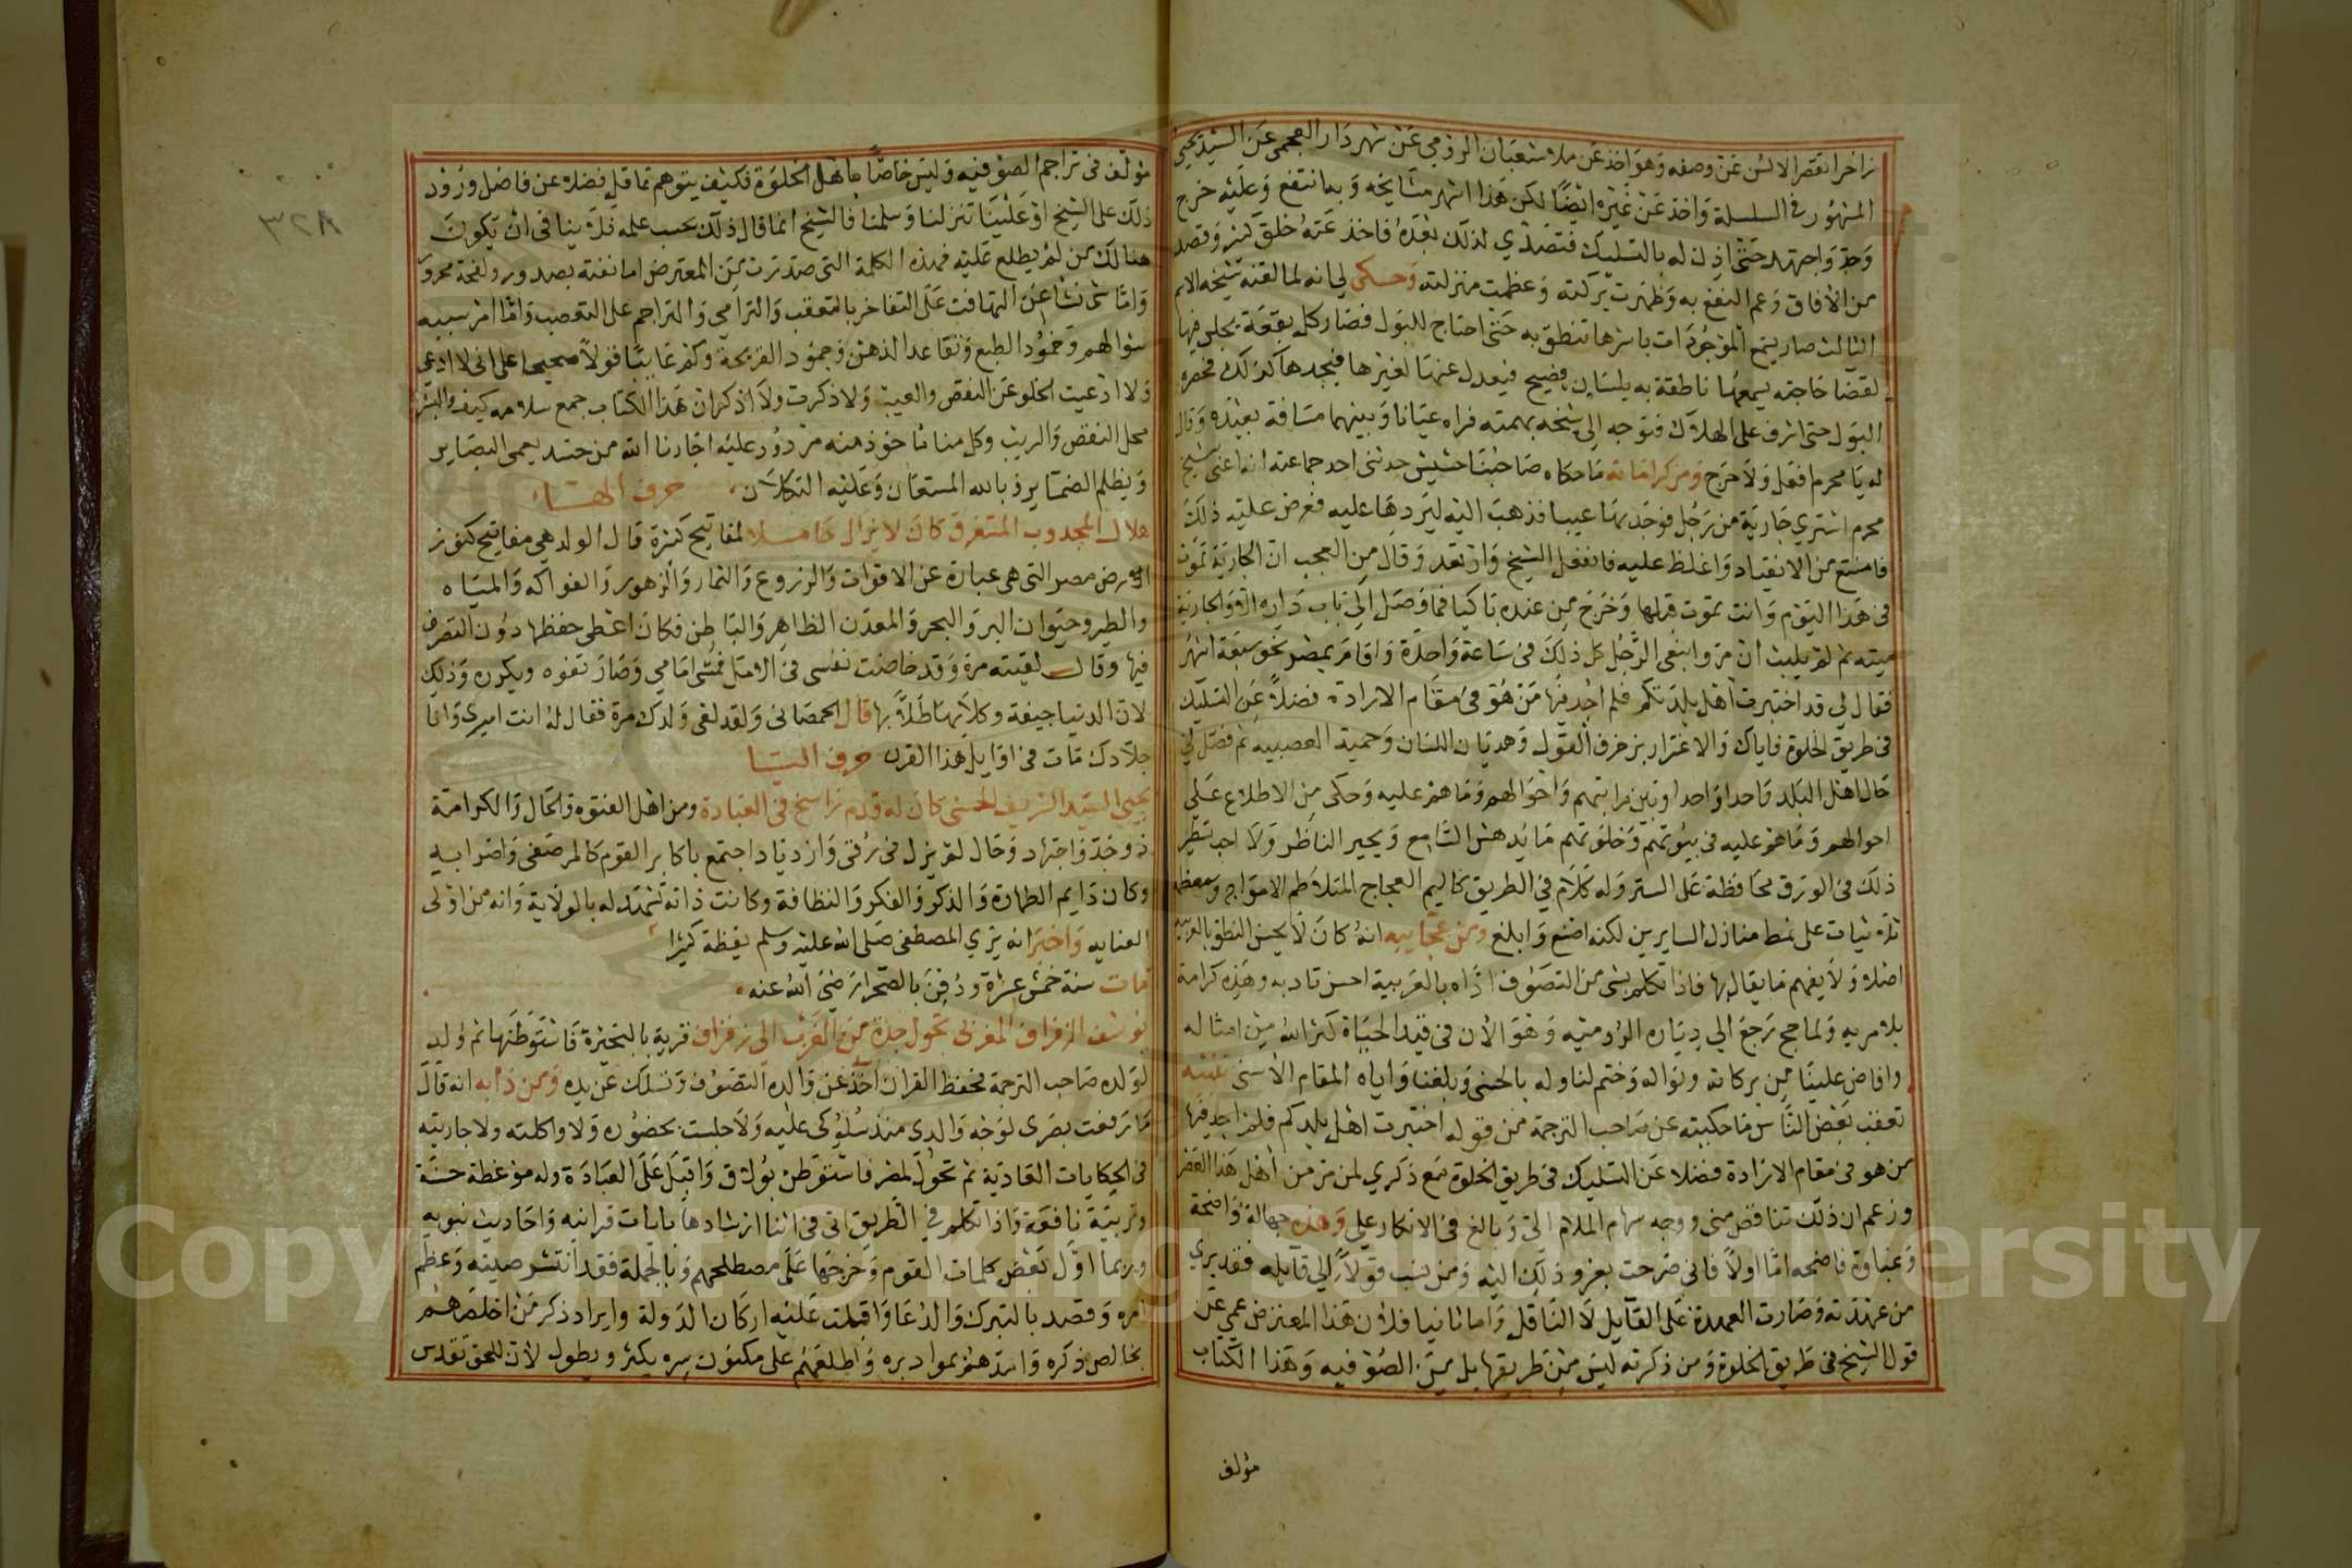 زاخرا تقصر الالسن عن وصفه وهو اخذ عن ملا شعبان الرومي عن شهردار العجمي عن السيد يحيى
المشهور في السلسلة واخذ عن غيره ايضا لكن هذا اشهر مشايخه وبه انتفع وعليه خرج
وجد واجتهد حتى اذن له بالتسليك فتصدي لذلك بعده فاخذ عنه خلق كثير وقصد
من الافاق وعم النفع به وظهرت بركته وعظمت منزلته وحكى لي انه لما لقنه شيخه الاسم
الثالث صار يسمع الموجودات باسرها تنطق به حتى احتاج للبول فصار كل بقعة يجلس فيها
لقضا حاجته يسمعها ناطقة به بلسان فصيح فيعدل عنها لغيرها فيجدها كذلك فحصره
البول حتى اشرف على الهلاك فتوجه الى شيخه بهمته فراه عيانا وبينهما مسافة بعيدة وقال
له يا محرم افعل ولا حرج ومن كراماته ما حكاه صاحبنا حشيش حدثني احد جماعته انه اعني شيخ
محرم اشتري جارية من رجل فوجد بها عيبا فذهب اليه ليردها عليه فعرض عليه ذلك
فامتنع من الانقياد واغلظ عليه فانفعل الشيخ وارتعد وقال من العجب ان الجارية تموت
في هذا اليوم وانت تموت قبلها وخرج من عنده باكيا فما وصل الى باب داره الا والجارية
ميتة ثم لم يلبث ان مر وابنعى الرجل كل ذلك في ساعة واحدة واقام بمصر نحو سبعة اشهر
فقال لي قد اختبرت اهل بلدتكم فلم اجد فيها من هو في مقام الارادة فضلا عن التسليك
في طريق الخلوة فاياك والاغترار بزخرف القول وهذيان اللسان وحمية العصبية ثم فصل لي
حال اهل البلد واحدا واحدا وبين مراتبهم واحوالهم وما هم عليه وحكى من الاطلاع على
احوالهم وما هم عليه في بيوتهم وخلوتهم ما يدهش السامع ويحير الناظر ولا احب تسطير
ذلك في الورق محافظة على الستر وله كلام في الطريق كاليم العجاج المتلاطم الامواج ومعظمه
ثلاثيات على نمط منازل السايرين لكنه اصنع وابلغ ومن عجايبه انه كان لا يحسن النطق بالعربية
اصلا ولا يفهم ما يقال بها فاذا تكلم بشي من التصوف اداه بالعربية احسن تاديه وهذه كرامة
بلا مريه ولما حج رجع الي دياره الروميه وهو الان في قيد الحياة كثر الله من امثاله
وافاض علينا من بركاته ونواله وختم لنا وله بالحسنى وبلغنا واياه المقام الاسنى تنبيه
تعقب بعض الناس ما حكيته عن صاحب الترجمة من قوله اختبرت اهل بلدكم فلم اجد فيها
من هو في مقام الارادة فضلا عن التسليك في طريق الخلوة مع ذكري لمن مر من اهل هذا العصر
وزعم ان ذلك تناقض مني ووجه سهام الملام الي وبالغ في الانكار علي وهذه جهالة واضحة
وغباوة فاضحه اما اولا فاني صرحت بعزو ذلك اليه ومن نسب قولا الي قايله فقد بري
من عهدته وصارت العهدة على القايل لا الناقل واما ثانيا فلان هذا المعترض عمي عن
قول الشيخ في طريق الخلوة ومن ذكرته ليس من طريقها بل من الصوفيه وهذا الكتاب
مؤلف
مؤلف في تراجم الصوفيه وليس خاصا باهل الخلوة فكيف يتوهم عاقل فضلا عن فاضل ورود
ذلك على الشيخ او علينا تنزلنا وسلمنا فالشيخ انما قال ذلك بحسب علمه فلا ينافي ان يكون
هنالك من لم يطلع عليه فهذه الكلمة التي صدرت من المعترض اما نفثة بصدور ولفحة محرور
واما شي نشا عن التهافت على التفاخر بالتعقب والترامي والتراجم على التعصب واما امر سببه
سوالهم وخمود الطبع وتقاعد الذهن وجمود القريحة وكم عايبا قولا صحيحا على اني لا ادعى
ولا ادعيت الخلو عن النقص والعيب ولا ذكرت ولا اذكر ان هذا الكتاب جمع سلامه كيف والبشر
محل النقص والريب وكل منا ماخوذ منه مردود عليه اجارنا الله من حسد يعمى البصاير
ويظلم الضماير وبالله المستعان وعليه التكلان حرف الهـاء
هلال المجدوب المتغرق كان لا يزال حاملا لمفاتيح كثيرة قال الوالد هي مفاتيح كنوز
ارض مصر التي هي عبارة عن الاقوات والزروع والثمار والزهور والفواكه والمياه
والطير وحيوان البر والبحر والمعدن الظاهر والباطن فكان اعطى حفظها دون التصرف
فيها وقال لقيته مرة وقد خاضت نفسى في الامل فمشى امامي وصار تفوه ويكرره وذلك
لان الدنيا جيفة وكلابها طلابها قال الحمصاني ولقد لقى ولدك مرة فقال له انت اميري وانا
جلادك مات في اوايل هذا القرن حرف اليـا
يحيى السيد الشريف الحسنى كان له قدم راسخ في العبادة ومن اهل الفتوه والحال والكرامة
ذو جد واجتهاد وحال لم يزل في رقى وازدياد اجتمع باكابر القوم كالمرصفى واضرابه
وكان دايم الطهارة والذكر والفكر والنظافة وكانت ذاته تشهد له بالولاية وانه من اولى
العنايه واخبر انه يري المصطفى صلى الله عليه وسلم يقظة كثيرا
مات سنة خمس عشرة ودفن بالصحرا رضى الله عنه
يوسف الزفزاف المغربى تحول جده من الغرب الى زفزاف قرية بالبحيرة فاستوطنها ثم ولد
لولده صاحب الترجمة فحفظ القران اخذ عن والده التصوف وتسلك عن يده ومن دابه انه قال
ما رفعت بصرى لوجه والدى منذ سلوكى عليه ولا جلست بحضوره ولا واكلته ولا جاريته
في الحكايات العادية ثم تحول لمصر فاستوطن بولاق واقبل على العبادة وله موعظة حسنة
وتربية نافعة واذا تكلم في الطريق اتى في اثنا ارشادها بايات قرانيه واحاديث نبويه
وربما اول بعض كلمات القوم وخرجها على مصطلحهم وبالجملة فقد انتشر صيته وعظم
امره وقصد بالتبرك والدعا واقبلت عليه اركان الدولة وايراد ذكر من اخلصهم
بخالص ذكره وامدهم بموادبره واطلعهم على مكنون سره يكثر ويطول لان للحق تقدس
٣٢٨
Copyright © King Saud University